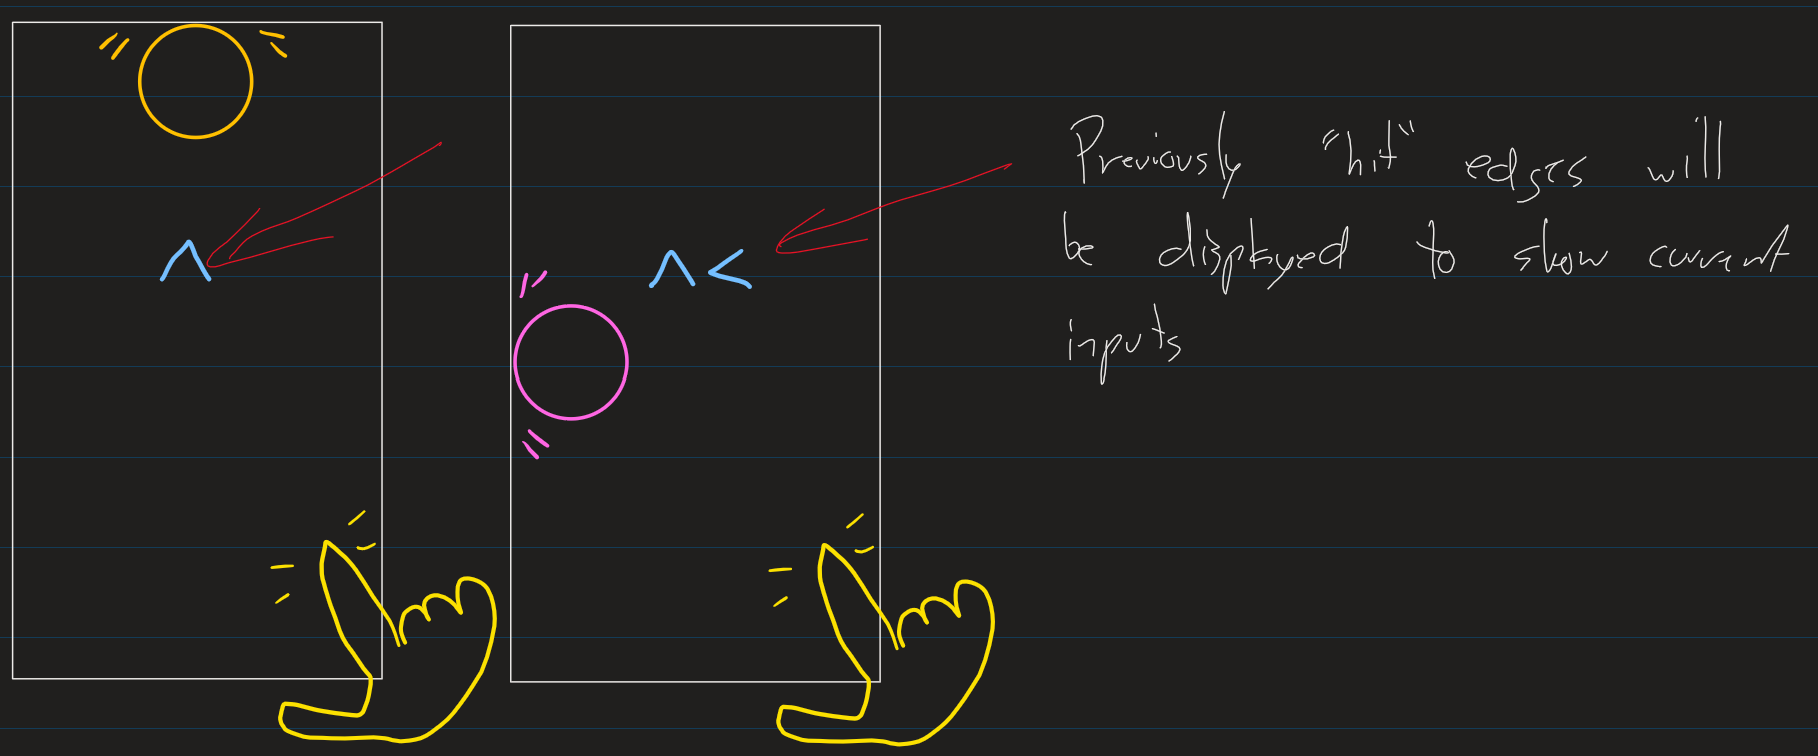 Previously "hit" edges will
be displayed to show current
inputs